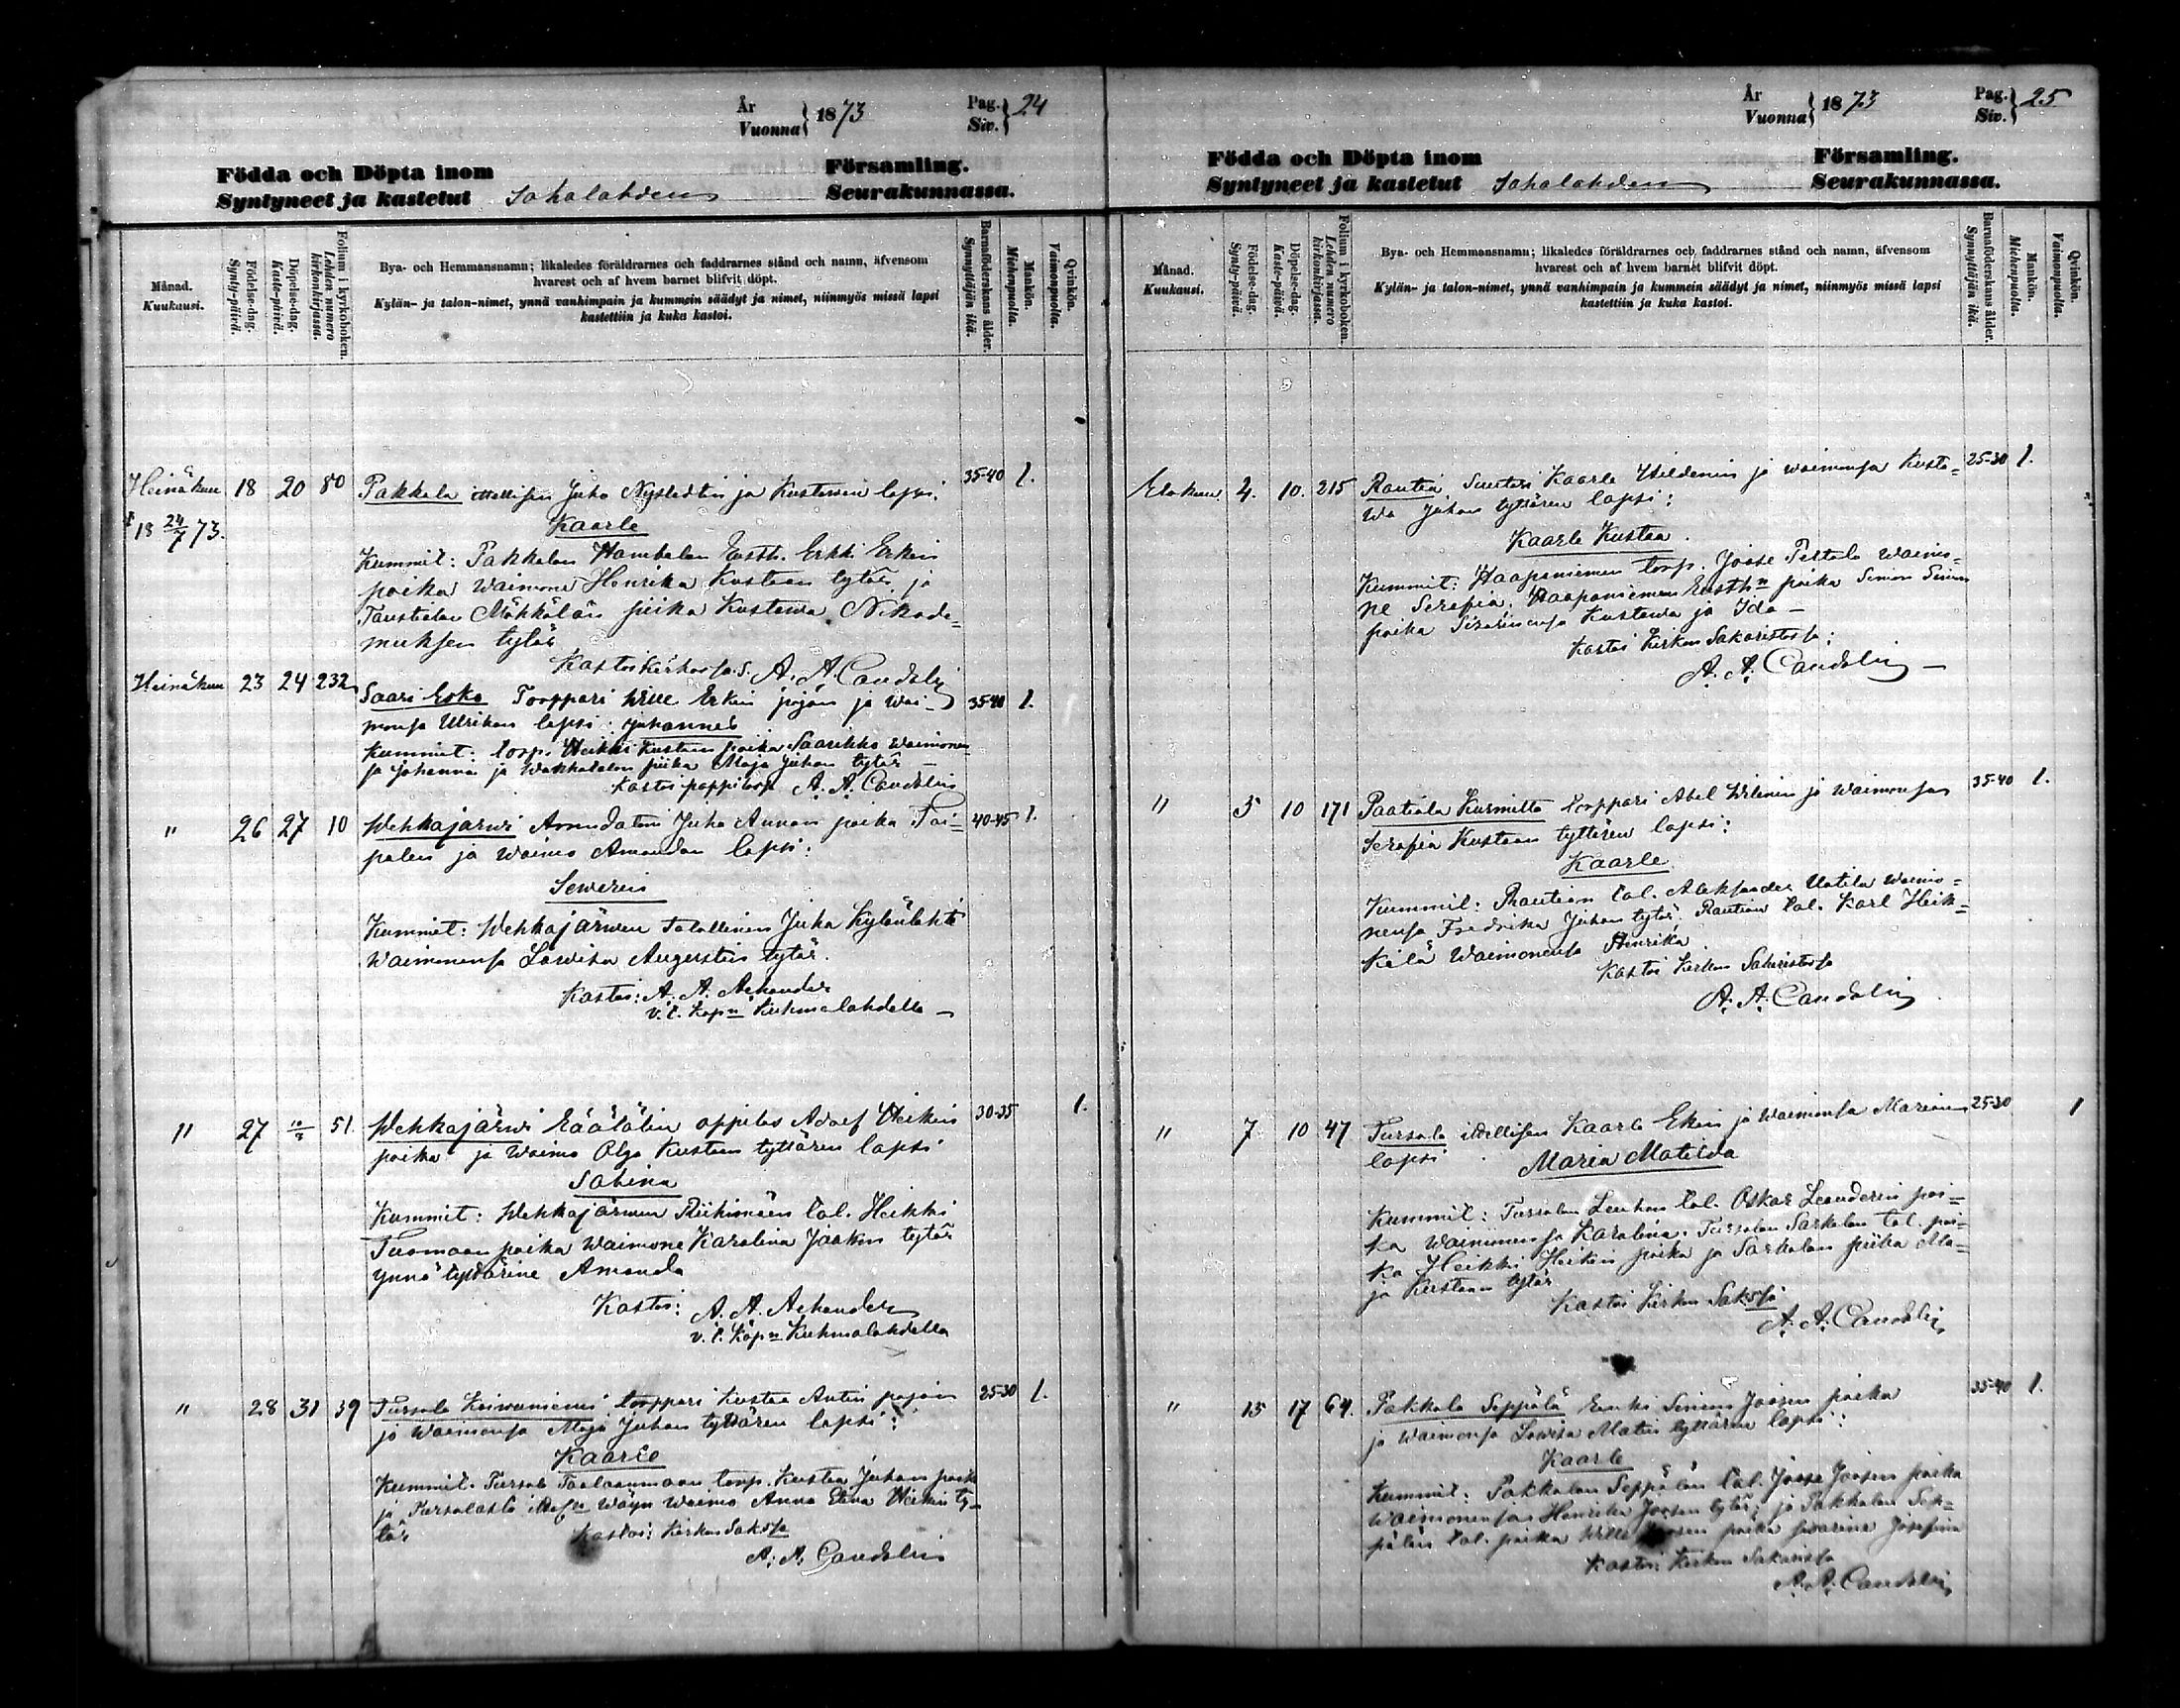 År
Vuonna } 1873
Pag.
Siv. } 24
Födda och Döpta inom Församling.
Syntyneet ja kastetut Sahalahden Seurakunnassa.
Månad.
Kuukausi.
Födelse-dag.
Synty-päivä.
Döpelse-dag.
Kaste-päivä.
Folium i kyrkoboken.
Lehden numero kirkonkirjassa.
Bya- och Hemmansnamn; likaledes föräldrarnes och faddrarnes stånd och namn, äfvensom
hvarest och af hvem barnet blifvit döpt.
Kylän- ja talon-nimet, ynnä vanhimpain ja kummein säädyt ja nimet, niinmyös missä lapsi
kastettiin ja kuka kastoi.
Barnaföderskans ålder.
Synnyttäjän ikä.
Mankön.
Miehenpuolta.
Qvinkön.
Vaimonpuolta.
Heinäkuu 18 20 80 Pakkala itsellisen Juho Nystedtin ja Kustawan lapsi. 35-40 1.
18 24/7 73. Kaarle
Kummit: Pakkalan Erkki Erkin
poika waimone Henrika Kustaan tytär ja
Taustialan Mäkkälän piika Kustawa Nikode=
muksen tytär
Kastoi Kirkossa A. A. Candelin
Heinäkuu 23 24 232 Saari Esko Torppari Wille Erkin pojan ja Wai- 35-40 1.
monsa Ulrikan lapsi: Johannes
Kummit: torp. Heikki Kustaan poika Saarikko waimonen-
sa Johanna ja piika Maja Juhan tytär -
Kastoi pappilassa A. A. Candelin
" 26 27 10 Wehkajärwi Juho Annan poika Tai= 40-45 1.
palen ja waimo Amandan lapsi:
Sewerin
Kummit: Wehkajärwen Talollinen Juha Kylänlahti
Waimonensa Lowisa Augustin tytär.
Kastoi: A. A. Achander
v. t. Kapn Kuhmalahdella -
" 27 51. Wehkajärwi Räätälin oppilas Adolf Heikin 30-35 1.
poika ja Waimo Olga Kustaan tyttären lapsi
Sabina
Kummit: Wehkajärwen Riihimäen tal. Heikki
Tuomaan poika Waimone Karolina Jaakon tytär
ynnä tyttärine Amanda
Kastoi: A. A. Achander
v. t. Kapn Kuhmalahdella
" 28 31 39 Tursola Koiwuniemi torppari Kustaa Antin pojan 25-30 1.
ja Waimonsa Maja Juhan tyttären lapsi:
Kaarlo
Kummit. Tursola torp. Kustaa Juhan poika
ja Waimo Anna Elina Heikin ty-
tär
Kastoi: Kirkon Sakssa
A. A. Candelin
År
Vuonna } 1873
Pag.
Siv. } 25
Födda och Döpta inom Församling.
Syntyneet ja kastetut Sahalahden Seurakunnassa.
Månad.
Kuukausi.
Födelse-dag.
Synty-päivä.
Döpelse-dag.
Kaste-päivä.
Folium i kyrkoboken.
Lehden numero kirkonkirjassa.
Bya- och Hemmansnamn; likaledes föräldrarnes och faddrarnes stånd och namn, äfvensom
hvarest och af hvem barnet blifvit döpt.
Kylän- ja talon-nimet, ynnä vanhimpain ja kummein säädyt ja nimet, niinmyös missä lapsi
kastettiin ja kuka kastoi.
Barnaföderskans ålder.
Synnyttäjän ikä.
Mankön.
Miehenpuolta.
Qvinkön.
Vaimonpuolta.
Elokuu 4. 10. 215 Rautia Suutari Kaarle Hildenin ja waimonsa Kusta- 25-30 1.
wa Juhan tyttären lapsi:
Kaarle Kustaa.
Kummit: Haapaniemen torp. Joose Pertola Waimo=
ne Serafia. Haapaniemen poika Simon Simon
poika Sisarinensa Kustawa ja Ida -
Kastoi Kirkon Sakaristossa:
A. A. Candelin -
" 5 10 171 Paatiala Kurmitta torppari Abel Wilenin ja Waimonsa 35-40 1.
Serafia Kustaan tyttären lapsi:
Kaarle
Kummit: Rautian tal. Aleksander Uotila Waimo=
nensa Fredrika Juhan tytär. Rautian tal. Karl Heik=
kilä Waimonensa Henrika.
Kastoi Kirkon Sakaristossa
A. A. Candelin
" 7 10 47 Tursola itsellisen Kaarlo Ekin ja Waimonsa Marian 25-30 1
lapsi Maria Matilda
Kummit: Tursolan Leuhan tal. Oskar Leanderin poi=
ka Waimonensa Karolina. Tursolan Sarkalan tal. poi-
ka Heikki Heikin poika ja Sarkalan piika Ma=
ja Kustaan tytär
Kastoi Kirkon Sakssa
A. A. Candelin
" 15 17 64. Pakkala Seppälä Simon Joosen poika 35-40 1.
ja Waimonsa Lowisa Matin tyttären lapsi:
Kaarle
Kummit: Pakkalan Seppälän tal. Joose Joosen poika
Waimonensa Henrika Joosen tytär, ja Pakkalan Sep=
pälän tal. poika Wille Joosen poika Josefina
Kastoi Kirkon Sakarissa
A. A. Candelin